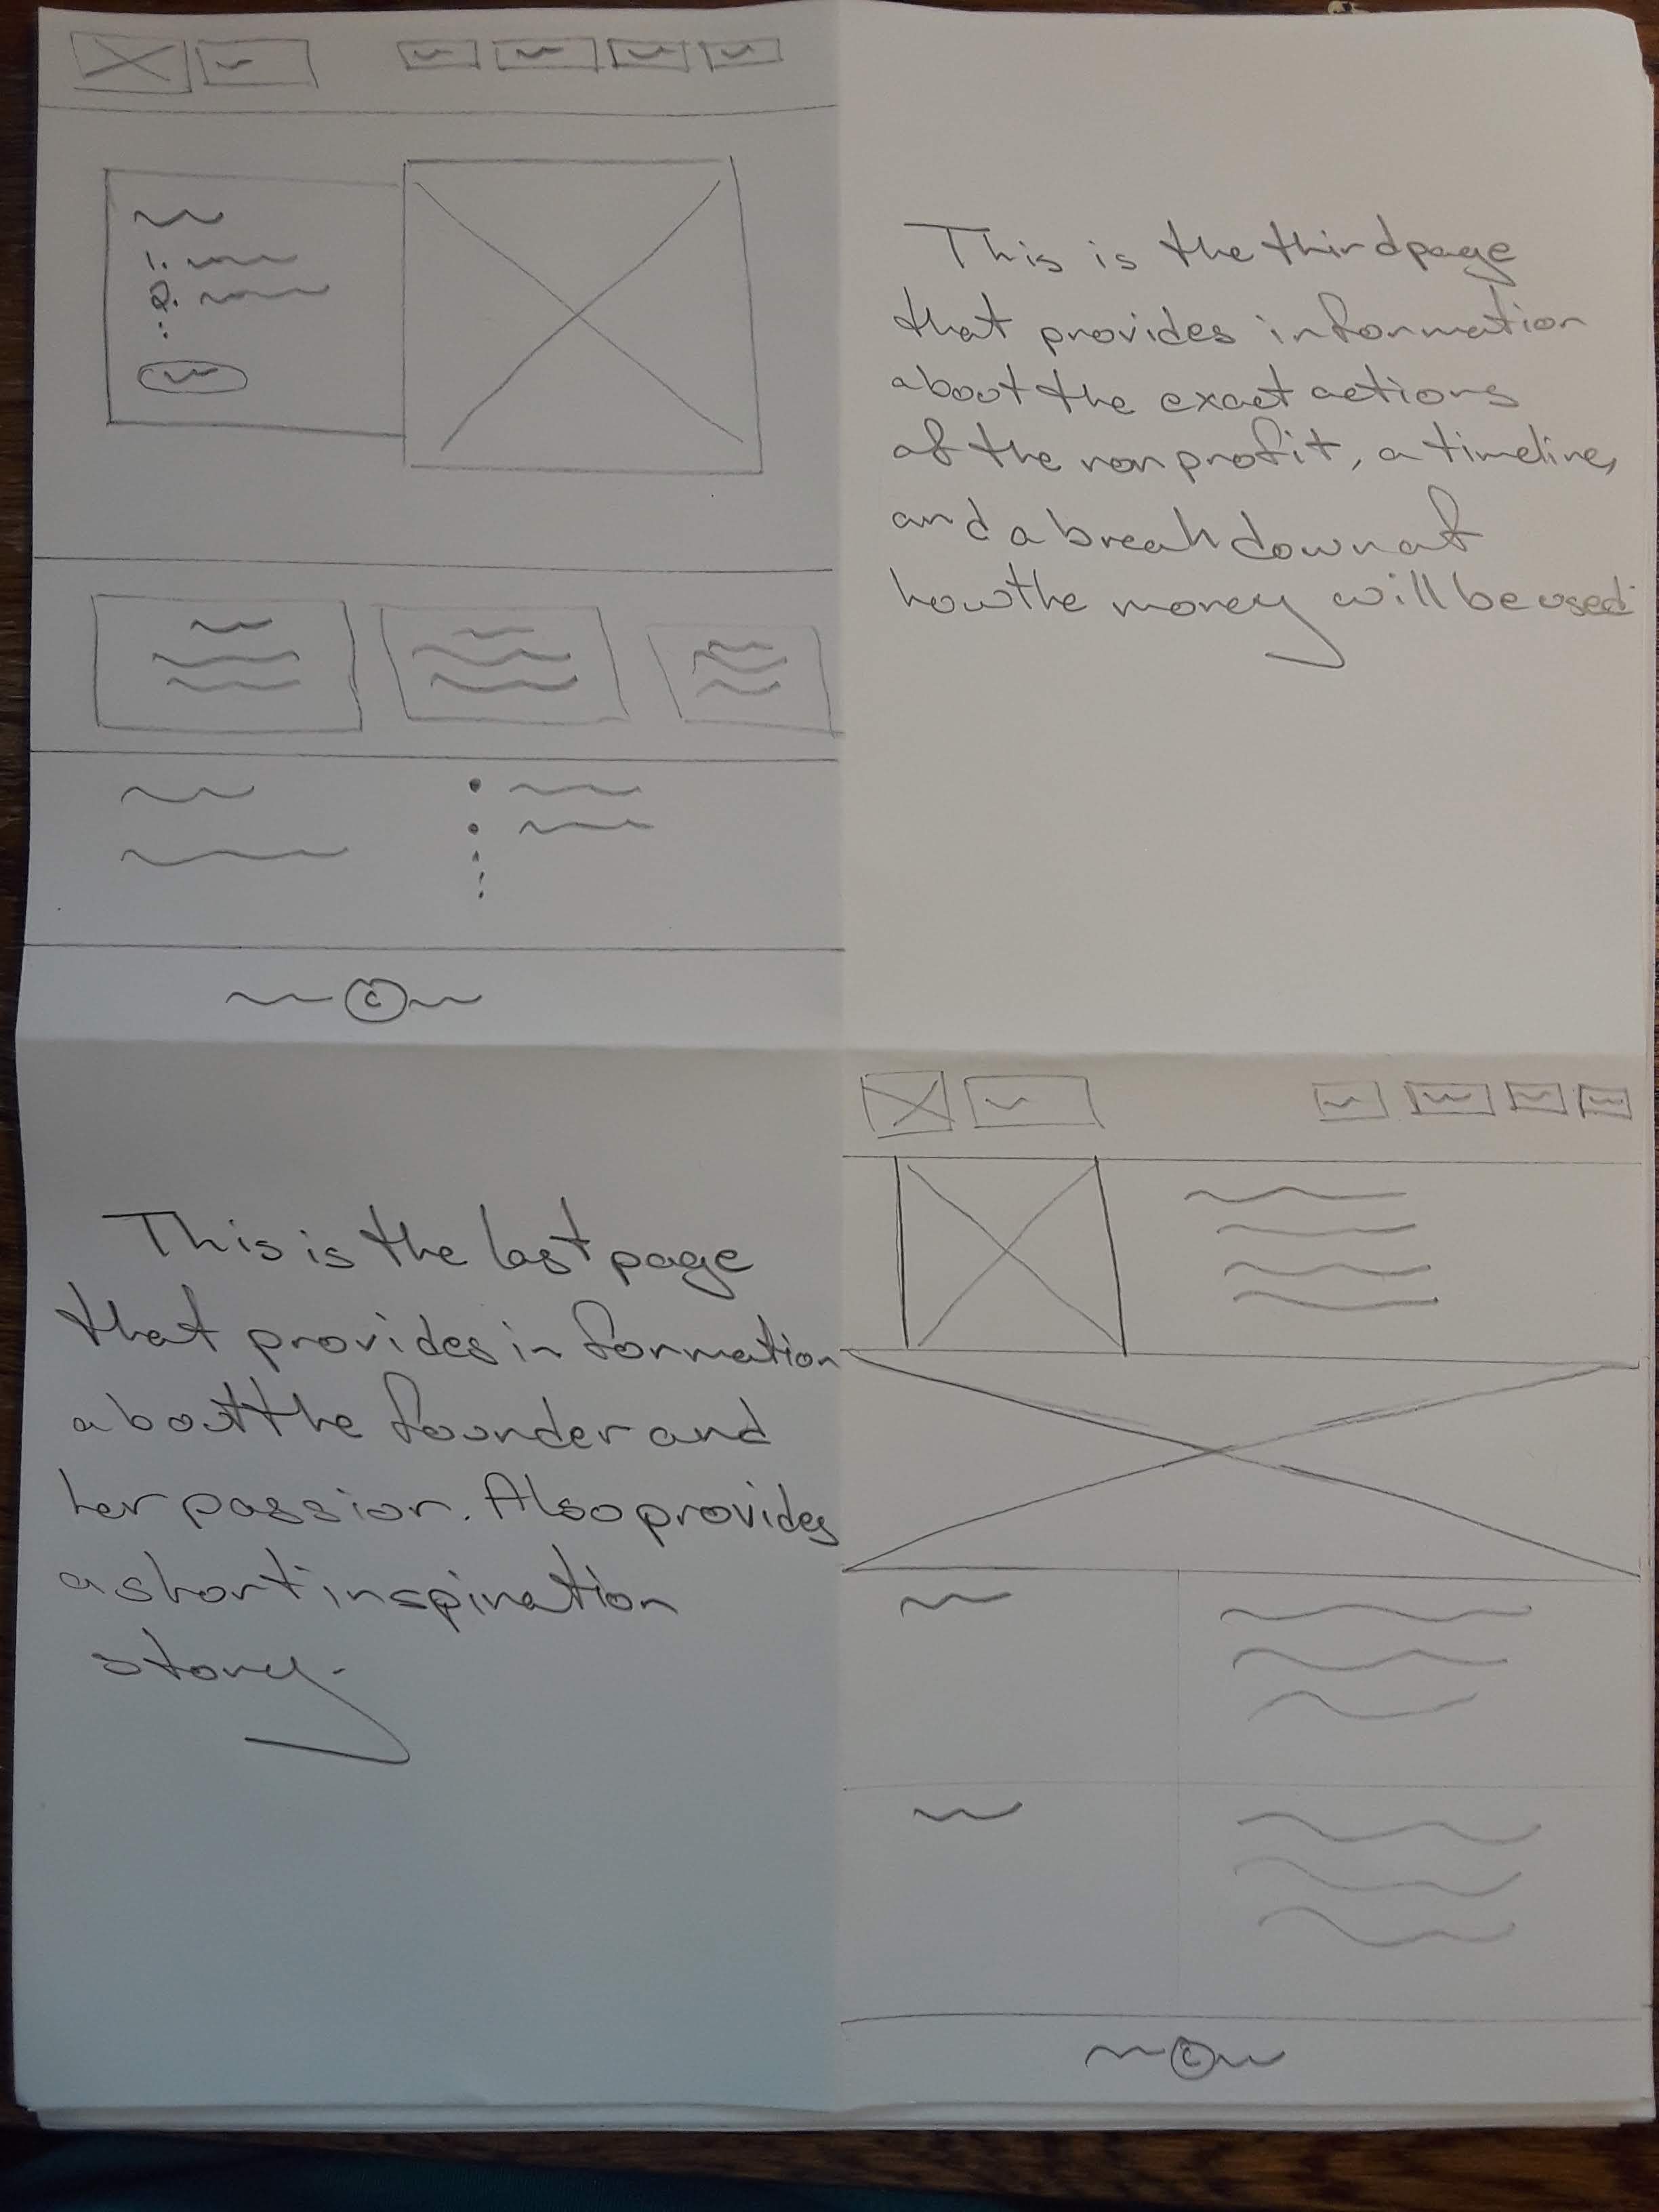 1.
2.
This is the third page
that provides information
about the exact actions
of the nonprofit, a timeline,
and a breakdown of
how the money will be used.
©
This is the last page
that provides information
about the founder and
her passion. Also provides
a short inspiration
story.
©